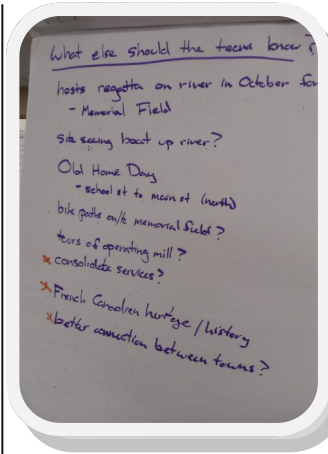 What else should the teens know?
hosts regatta on river in October for
- Memorial Field
site seeing boat up river?
Old Home Day
- school st to main st (north)
bike paths on/@ memorial field?
tours of operating mill?
x consolidate services?
x French Canadien heritage / history
x better connection between towns?